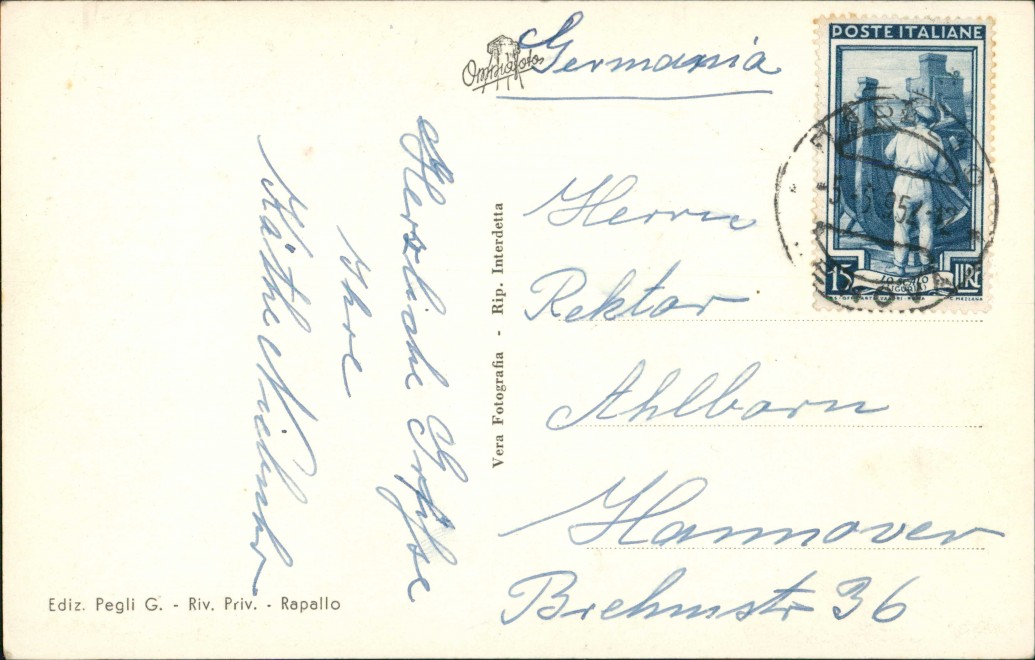 Herzliche Grüße
Ihre
Käthe
Ediz. Pegli G. - Riv. Priv. - Rapallo
Vera Fotografia - Rip. Interdetta
Omniafoto
Germania
POSTE ITALIANE
15 LIRE
Herrn
Rektor
Ahlborn
Hannover
Brehmstr 36